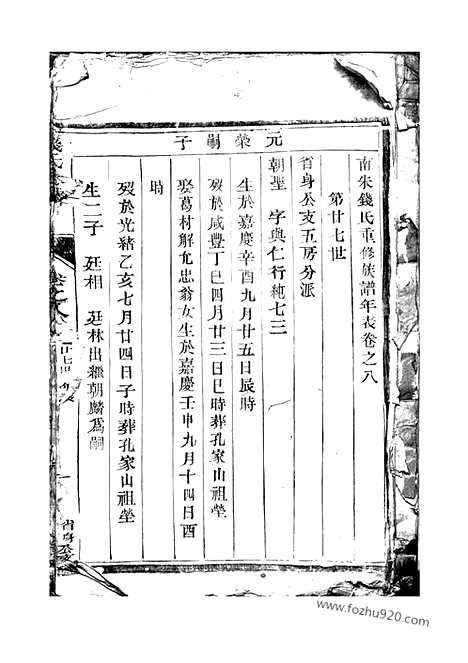 南朱錢氏重修族譜年表卷之八
第廿七世
省身公支五房分派
元榮嗣子
朝聖　字與仁行純七三
生於嘉慶辛酉九月廿五日辰時
歿於咸豐丁巳四月廿三日巳時葬孔家山祖塋
娶葛材解允忠翁女生於嘉慶壬申九月十四日酉
時
歿於光緒乙亥七月廿四日子時葬孔家山祖塋
生二子　廷相　廷林出繼朝麟爲嗣
卷之八
廿七世
一
省身公支
www.fozhu920.com